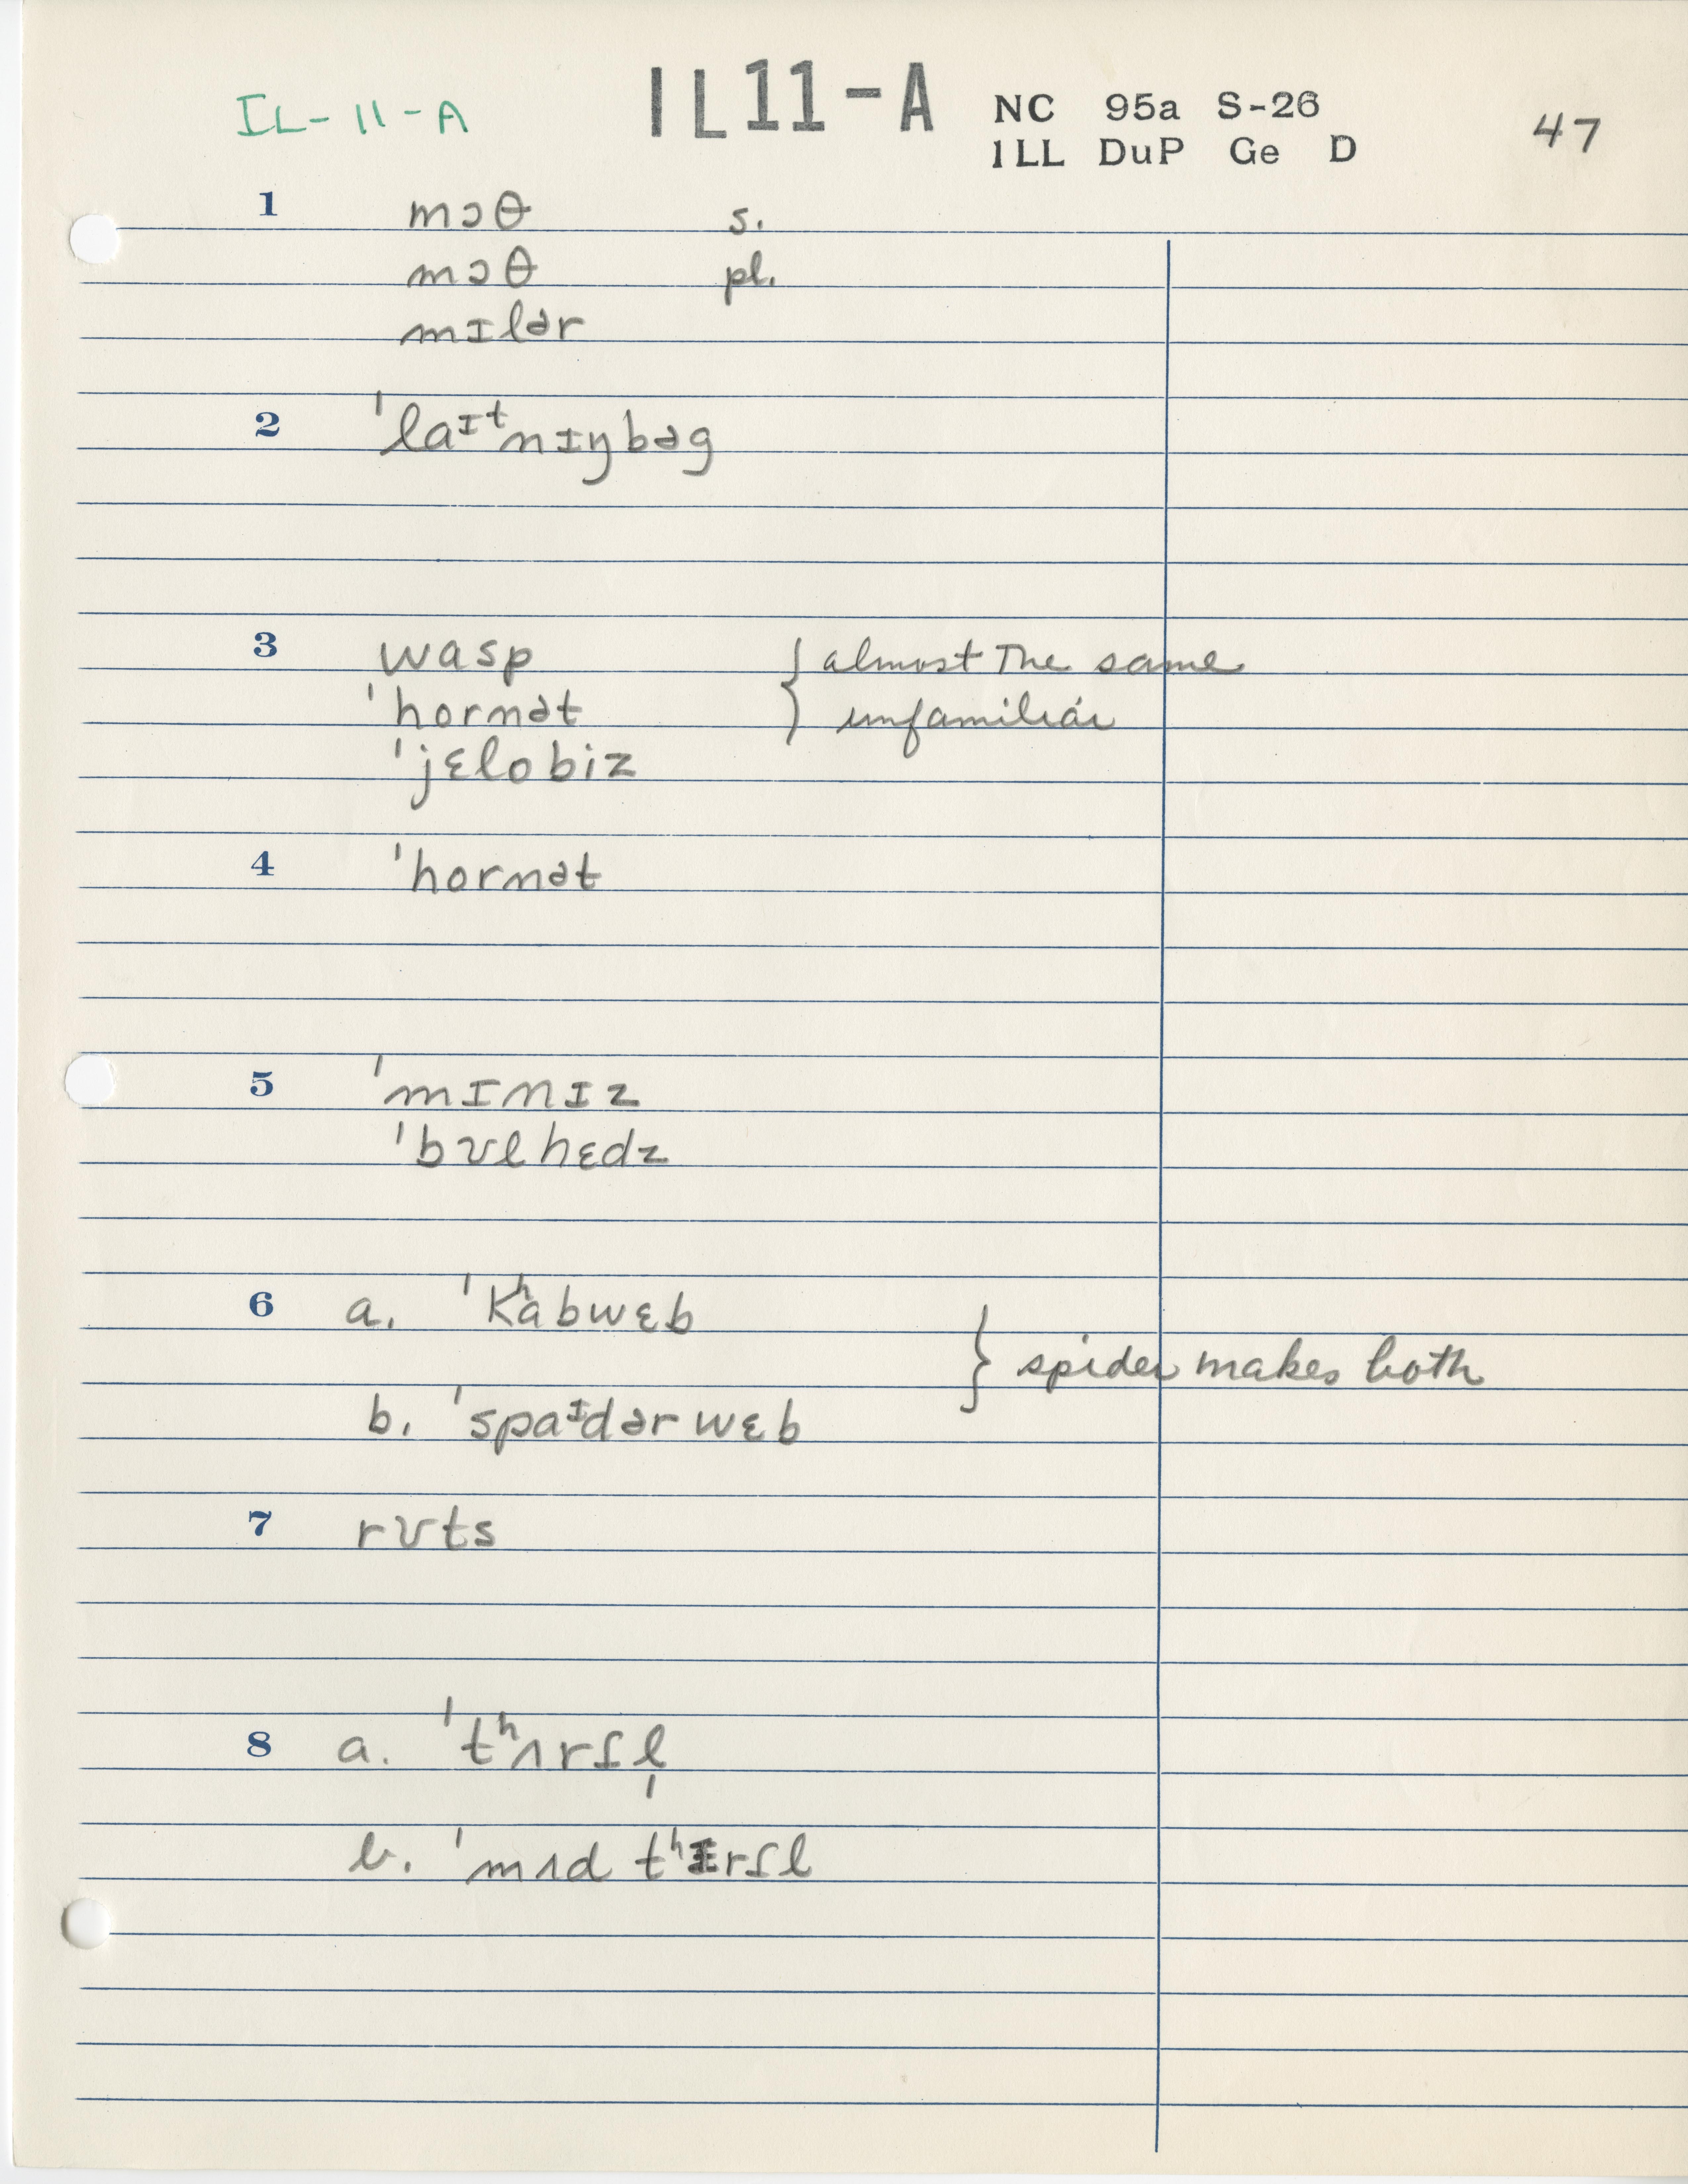 IL-11-A IL11-A NC 95a S-26 47
ILL DuP Ge D
1 mɔθ s.
mɔθ pl.
mɪlər
2 ˈlaᶦᵗnɪŋbəg
3 wasp } almost The same
ˈhornət } unfamiliar
ˈjɛlobiz
4 ˈhornət
5 ˈmɪnɪz
ˈbʊlhɛdz
6 a. ˈKʰabwɛb
} spider makes both
b. ˈspaᶦdərwɛb
7 rʊts
8 a. ˈtʰʌrſl̩
b. ˈmʌd tʰɪrſl